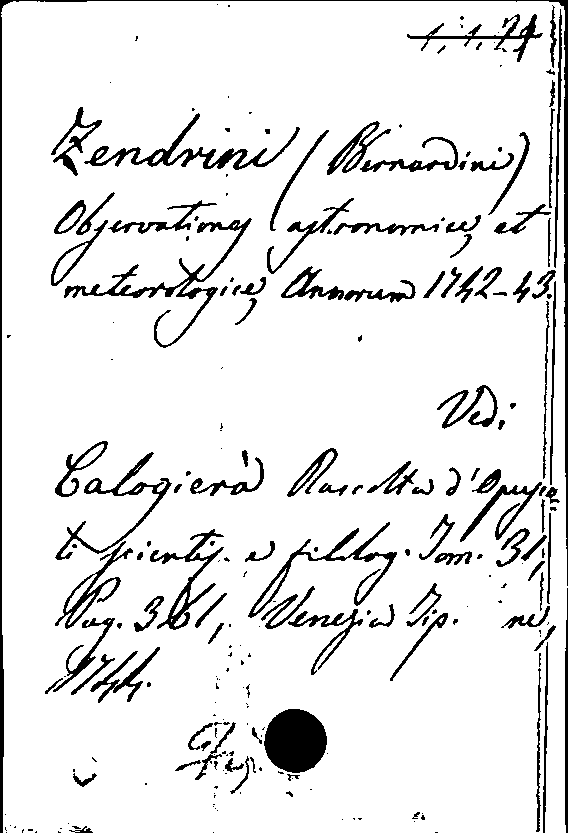 1.1.24
Zendrini (Bernardini)
Observationes astronomicę et
meteorologicę Annorum 1742-43.
Vedi
Calogierà Raccolta d'Opusco
li scientif. e filolog. Tom. 31,
Pag. 361, Venezia Tip. ne,
1744.